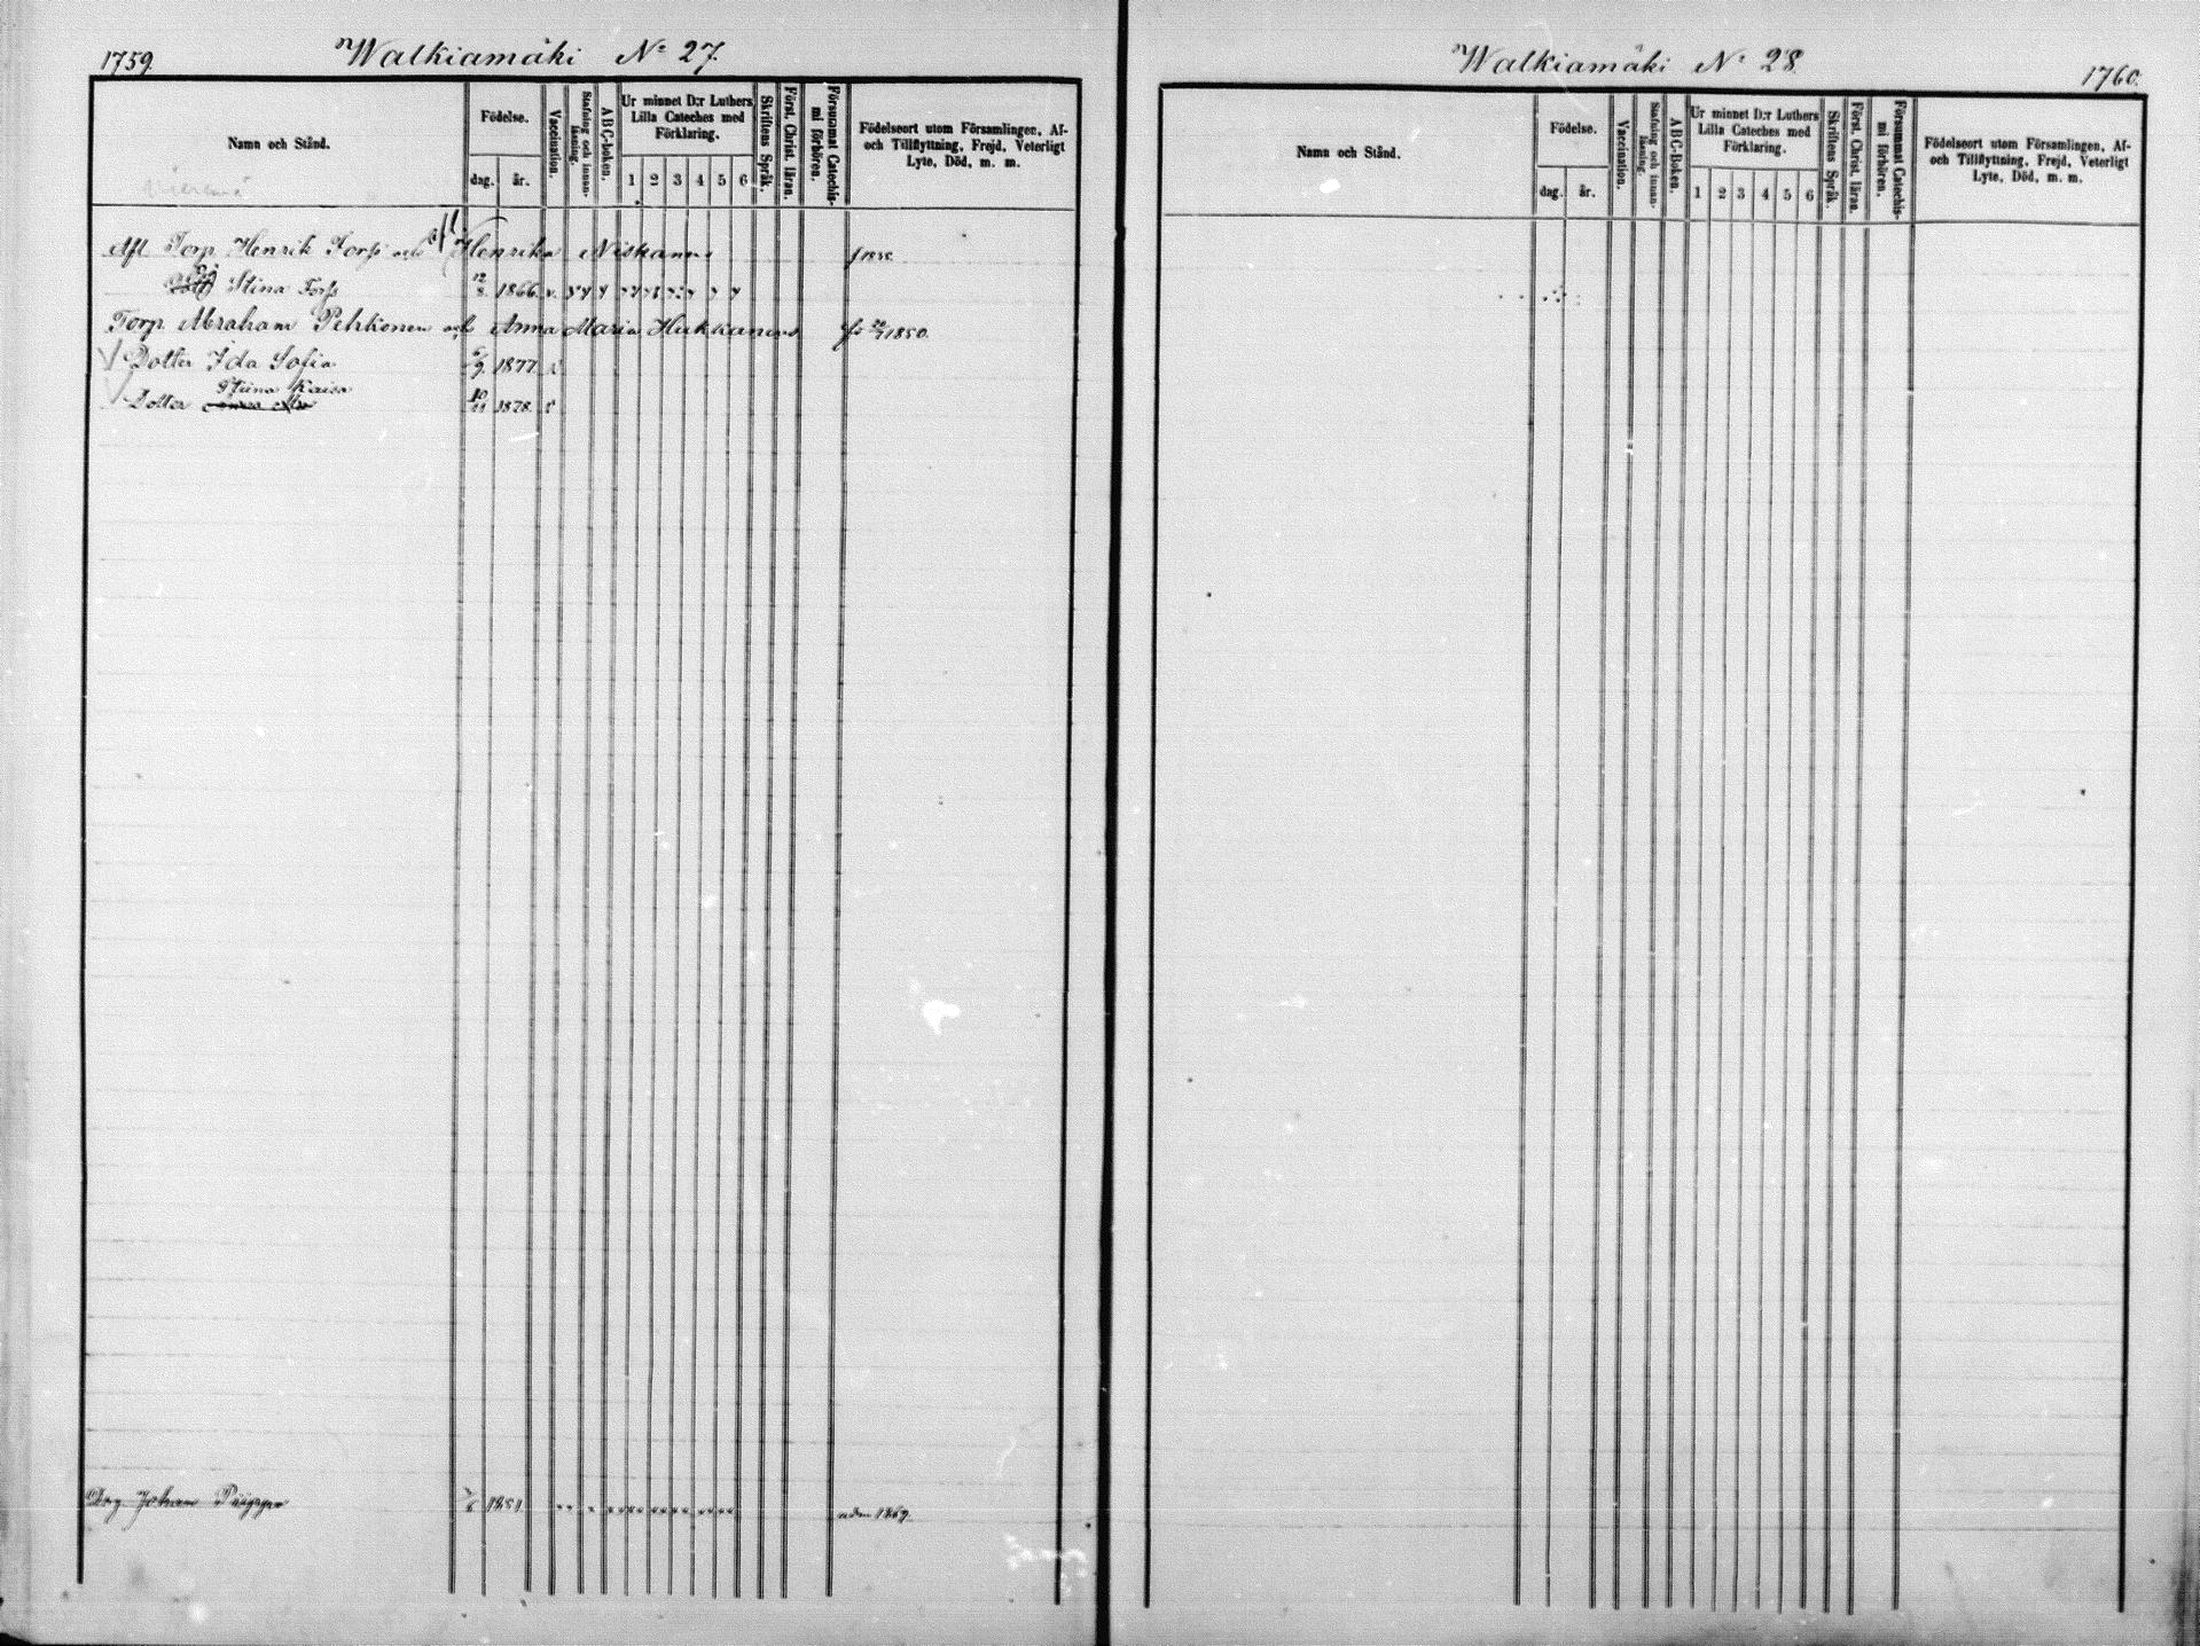 1759.
Walkiamäki No 27.
Namn och Stånd.
Födelse.
dag. år.
Vaccination.
Stafning och innanläsning.
A B C-boken.
Ur minnet D:r Luthers
Lilla Cateches med
Förklaring.
1 2 3 4 5 6
Skriftens Språk.
Först. Christ. läran.
Försummat Catechismi förhören.
Födelseort utom Församlingen, Af-
och Tillflyttning, Frejd, Veterligt
Lyte, Död, m. m.
Afl Torp. Henrik Forss och Henrika Niskanens
Stina Forss 12/8 1866 v.
Torp. Abraham Pehkonen och Anna Maria Hukkanens 1850.
Dotter Ida Sofia 1877
Dotter Stiina Kaisa 10/11 1878
Johan 1851. adm 1869.
Walkiamäki No 28
1760.
Namn och Stånd.
Födelse.
dag. år.
Vaccination.
Stafning och innanläsning
A B C-Boken.
Ur minnet D:r Luthers
Lilla Cateches med
Förklaring.
1 2 3 4 5 6
Skriftens Språk.
Först. Christ. läran.
Försummat Catechismi förhören.
Födelseort utom Församlingen, Af-
och Tillflyttning, Frejd, Veterligt
Lyte, Död, m. m.